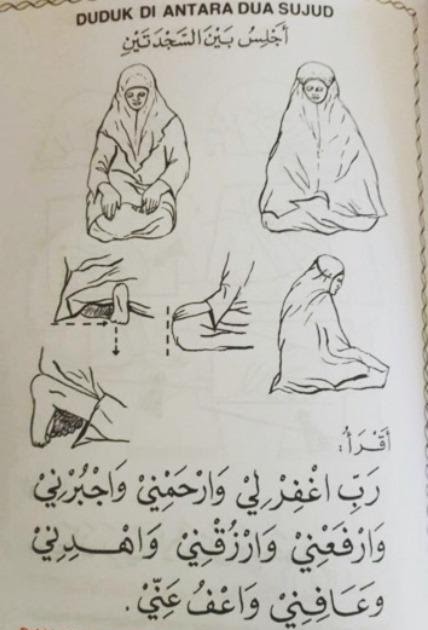 DUDUK DI ANTARA DUA SUJUD
أَجْلِسُ بَيْنَ السَّجْدَتَيْنِ
أَقْرَأُ:
رَبِّ اغْفِرْ لِيْ وَارْحَمْنِيْ وَاجْبُرْنِيْ
وَارْفَعْنِيْ وَارْزُقْنِيْ وَاهْدِنِيْ
وَعَافِنِيْ وَاعْفُ عَنِّيْ.